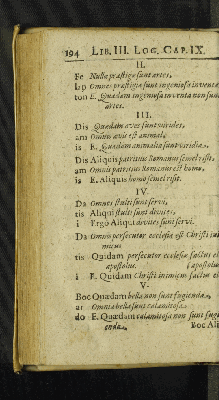 194 LIB. III. LOG. CAP. IX.
II.
Fe Nullæ præstigiæ sunt artes.
lap Omnes præstigiæ sunt ingeniosa inventa
ton E. Quædam ingeniosa inventa non sunt
artes.
III.
Dis Quædam aves sunt virides.
am Omnis avis est animal.
is E. Quædam animalia sunt viridia.
Dis Aliquis patritius Romanus semel risit.
am Omnis patritius Romanus est homo.
is E. Aliquis homo semel risit.
IV.
Da Omnes stulti sunt servi.
tis Aliqui stulti sunt divites.
i Ergò Aliqui divites sunt servi.
Da Omnis persecutor ecclesiæ est Christi ini-
micus
tis Quidam persecutor ecclesiæ factus est
apostolus. (apostolus
i E. Quidam Christi inimicus factus est
V.
Boc Quædam bella non sunt fugienda.
ar Omnia bella sunt calamitosa.
do E. Quædam calamitosa non sunt fugi-
enda.
Boc Ali